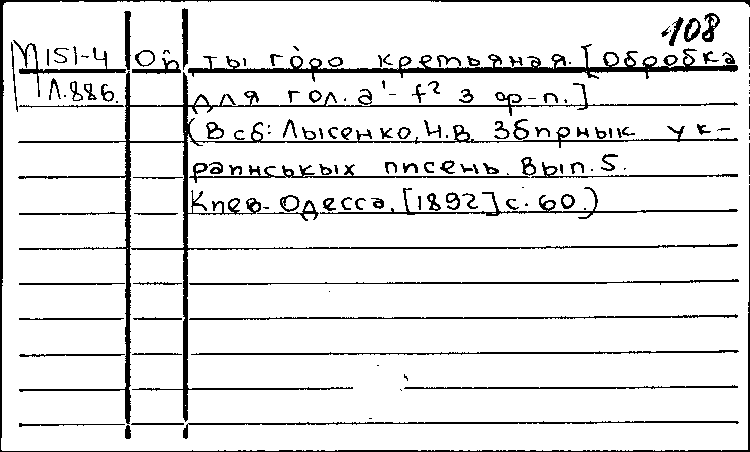 108
М151-4 Ой ты горо кретьяная. [Обробка
Л.886. для гол. a¹- f² з ф-п.]
(В сб: Лысенко, Н.В. Збирнык ук-
раинськых писень. Вып. 5.
Киев-Одесса, [1892] с. 60.)